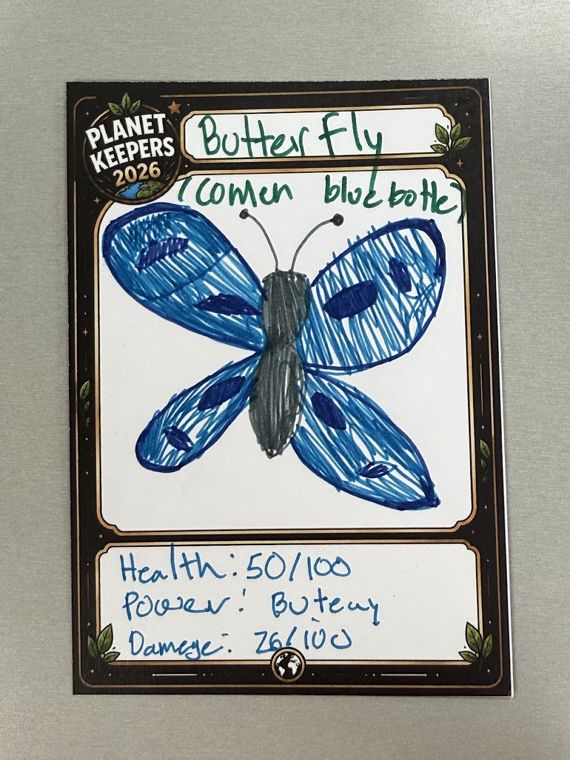 PLANET
KEEPERS
2026
Butter Fly
(comen blue bottle)
Health: 50/100
Power: Buteay
Damege: 26/100